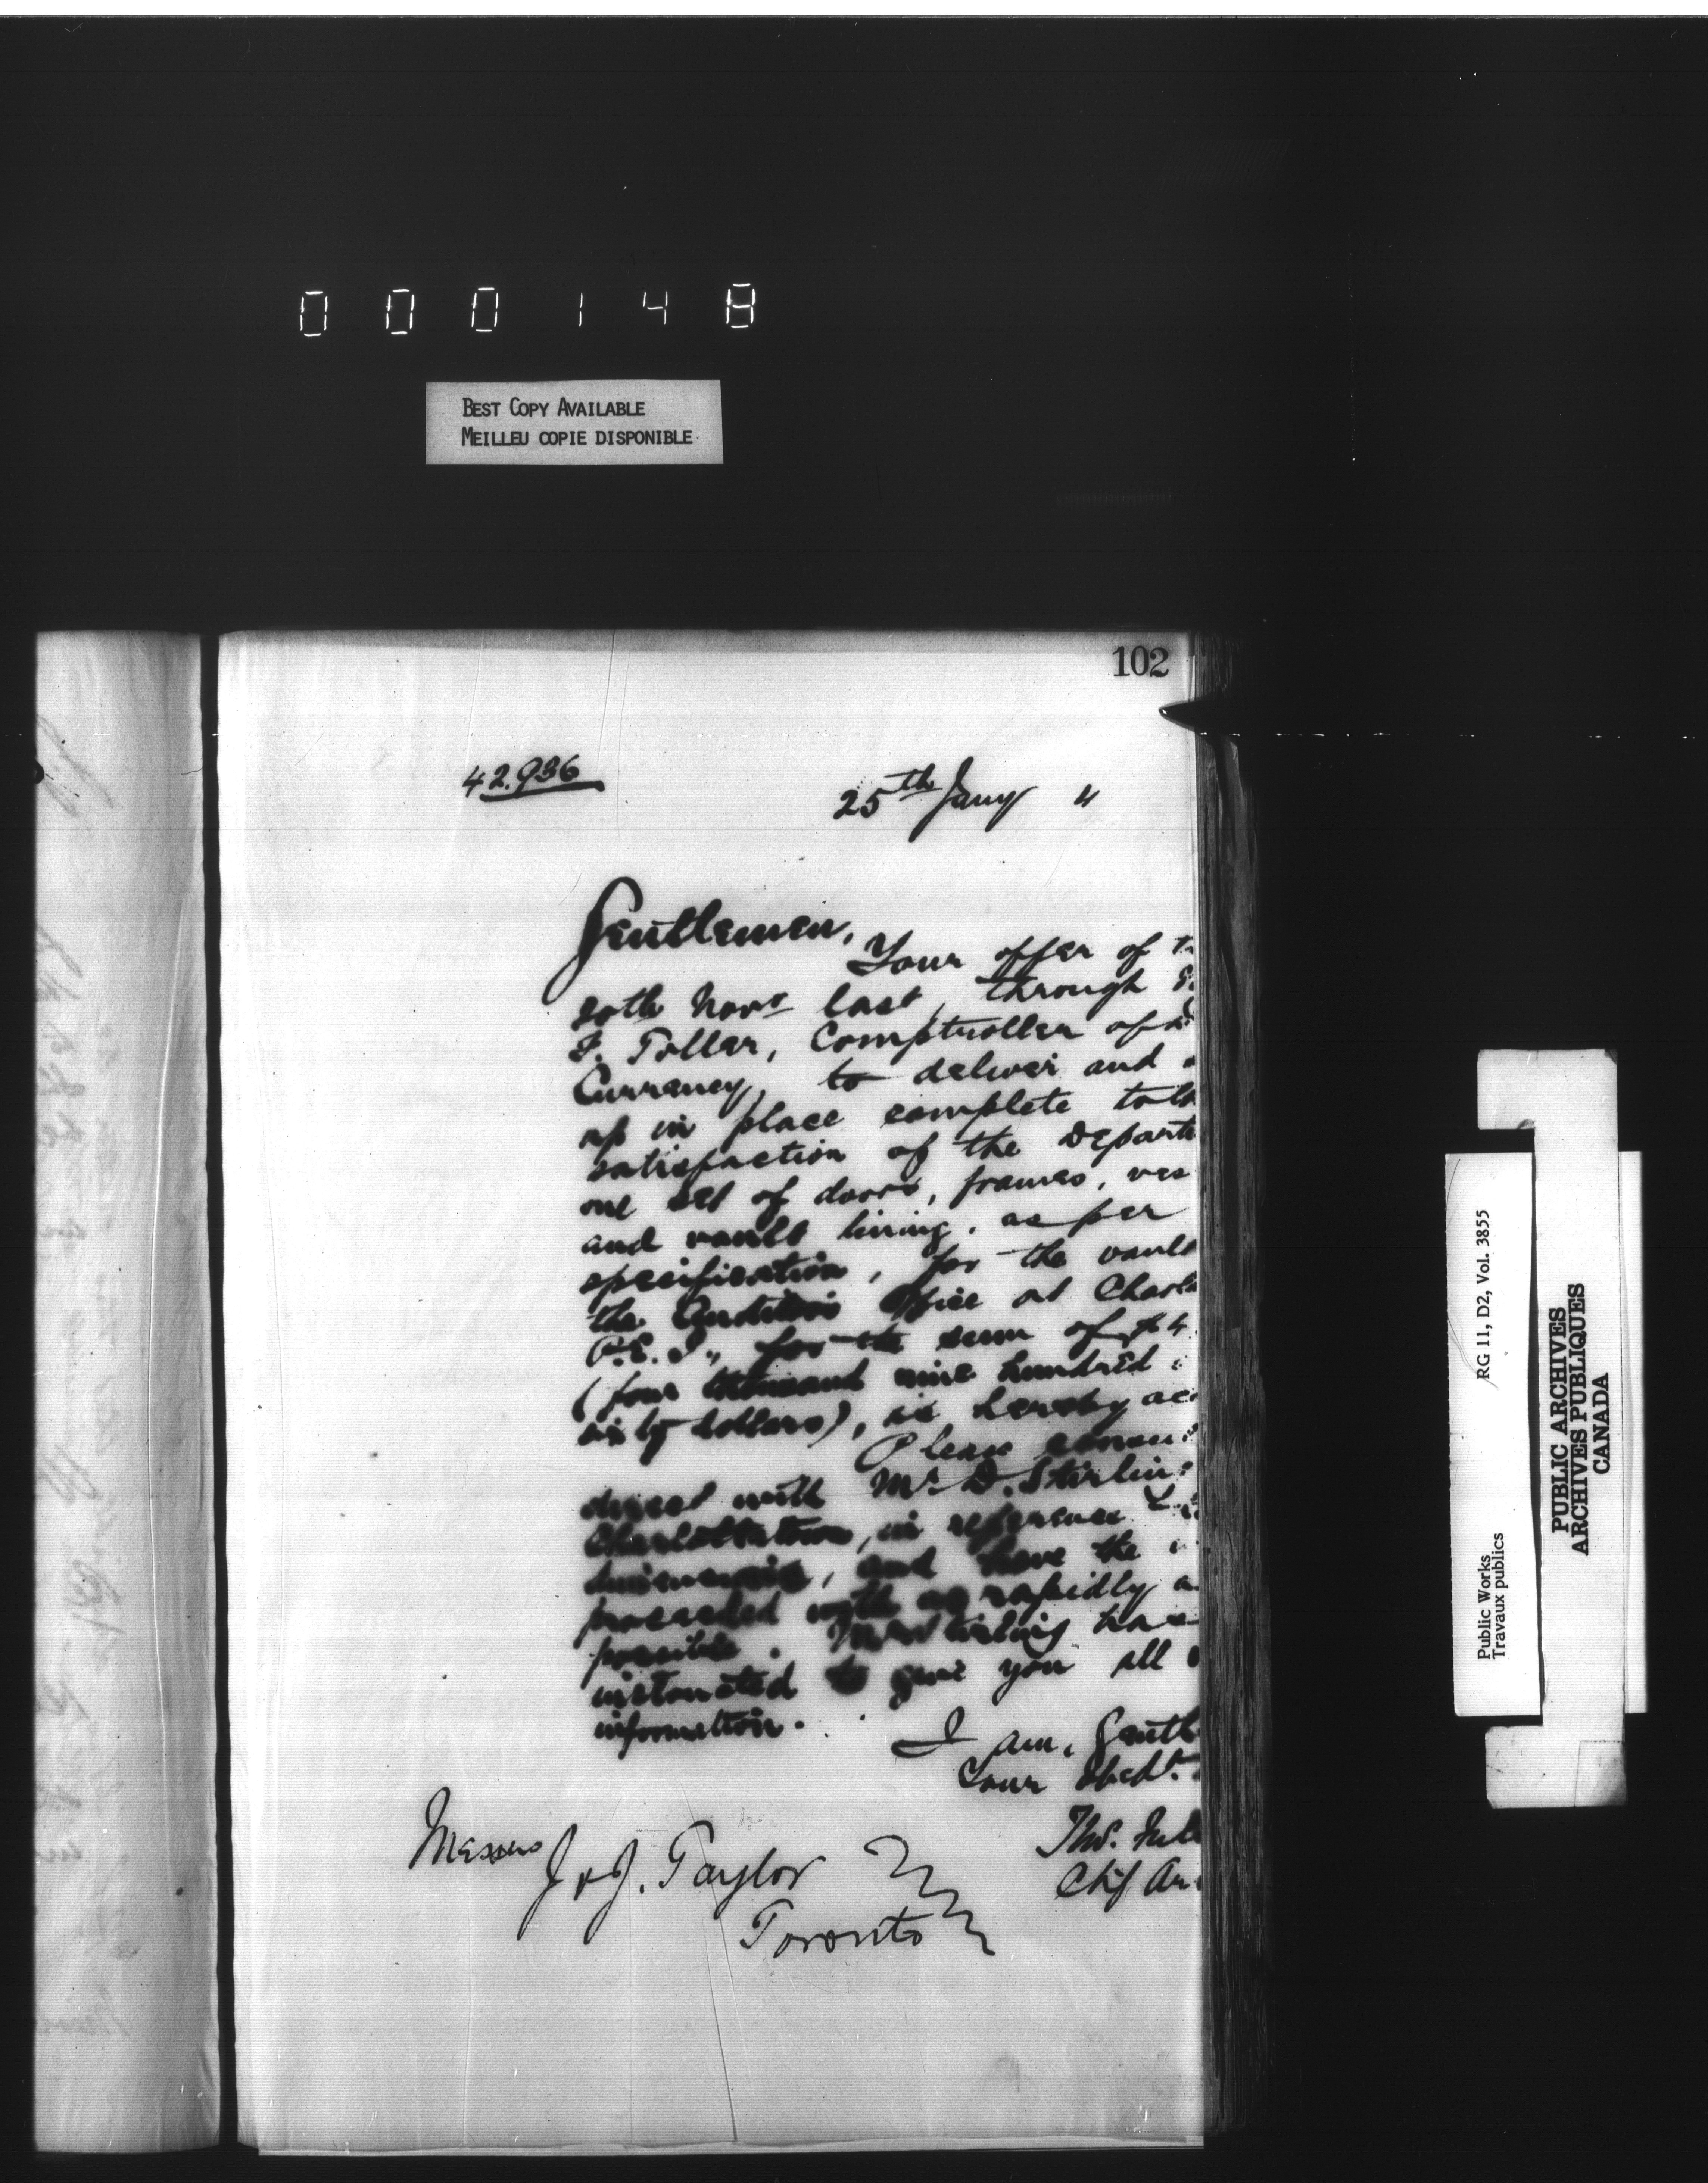 000148
BEST COPY AVAILABLE
MEILLEU COPIE DISPONIBLE
102
42.936
25th Jany "
Gentlemen,
Your offer of
Novr last, through
F. Toller, Comptroller of
Currency, to deliver and
up in place complete to
satisfaction of the Depart
one set of doors, frames, ves
and vault lining, as per
specification, for the vault
the Auditor's Office at Charl
P.E.I., for the sum of $4
(four thousand nine hundred
sixty dollars), is hereby ac
Please
direct with Mr D. Stirlin
Charlottetown, in reference
and have the
proceeded with as rapidly a
possible. Mr Stirling has
instructed to give you all
information.
I am, Gentl
Your Obedt.
Thos. Ful
Chf Ar
Messrs J & J. Taylor
Toronto
Public Works
Travaux publics
RG 11, D2, Vol. 3855
PUBLIC ARCHIVES
ARCHIVES PUBLIQUES
CANADA